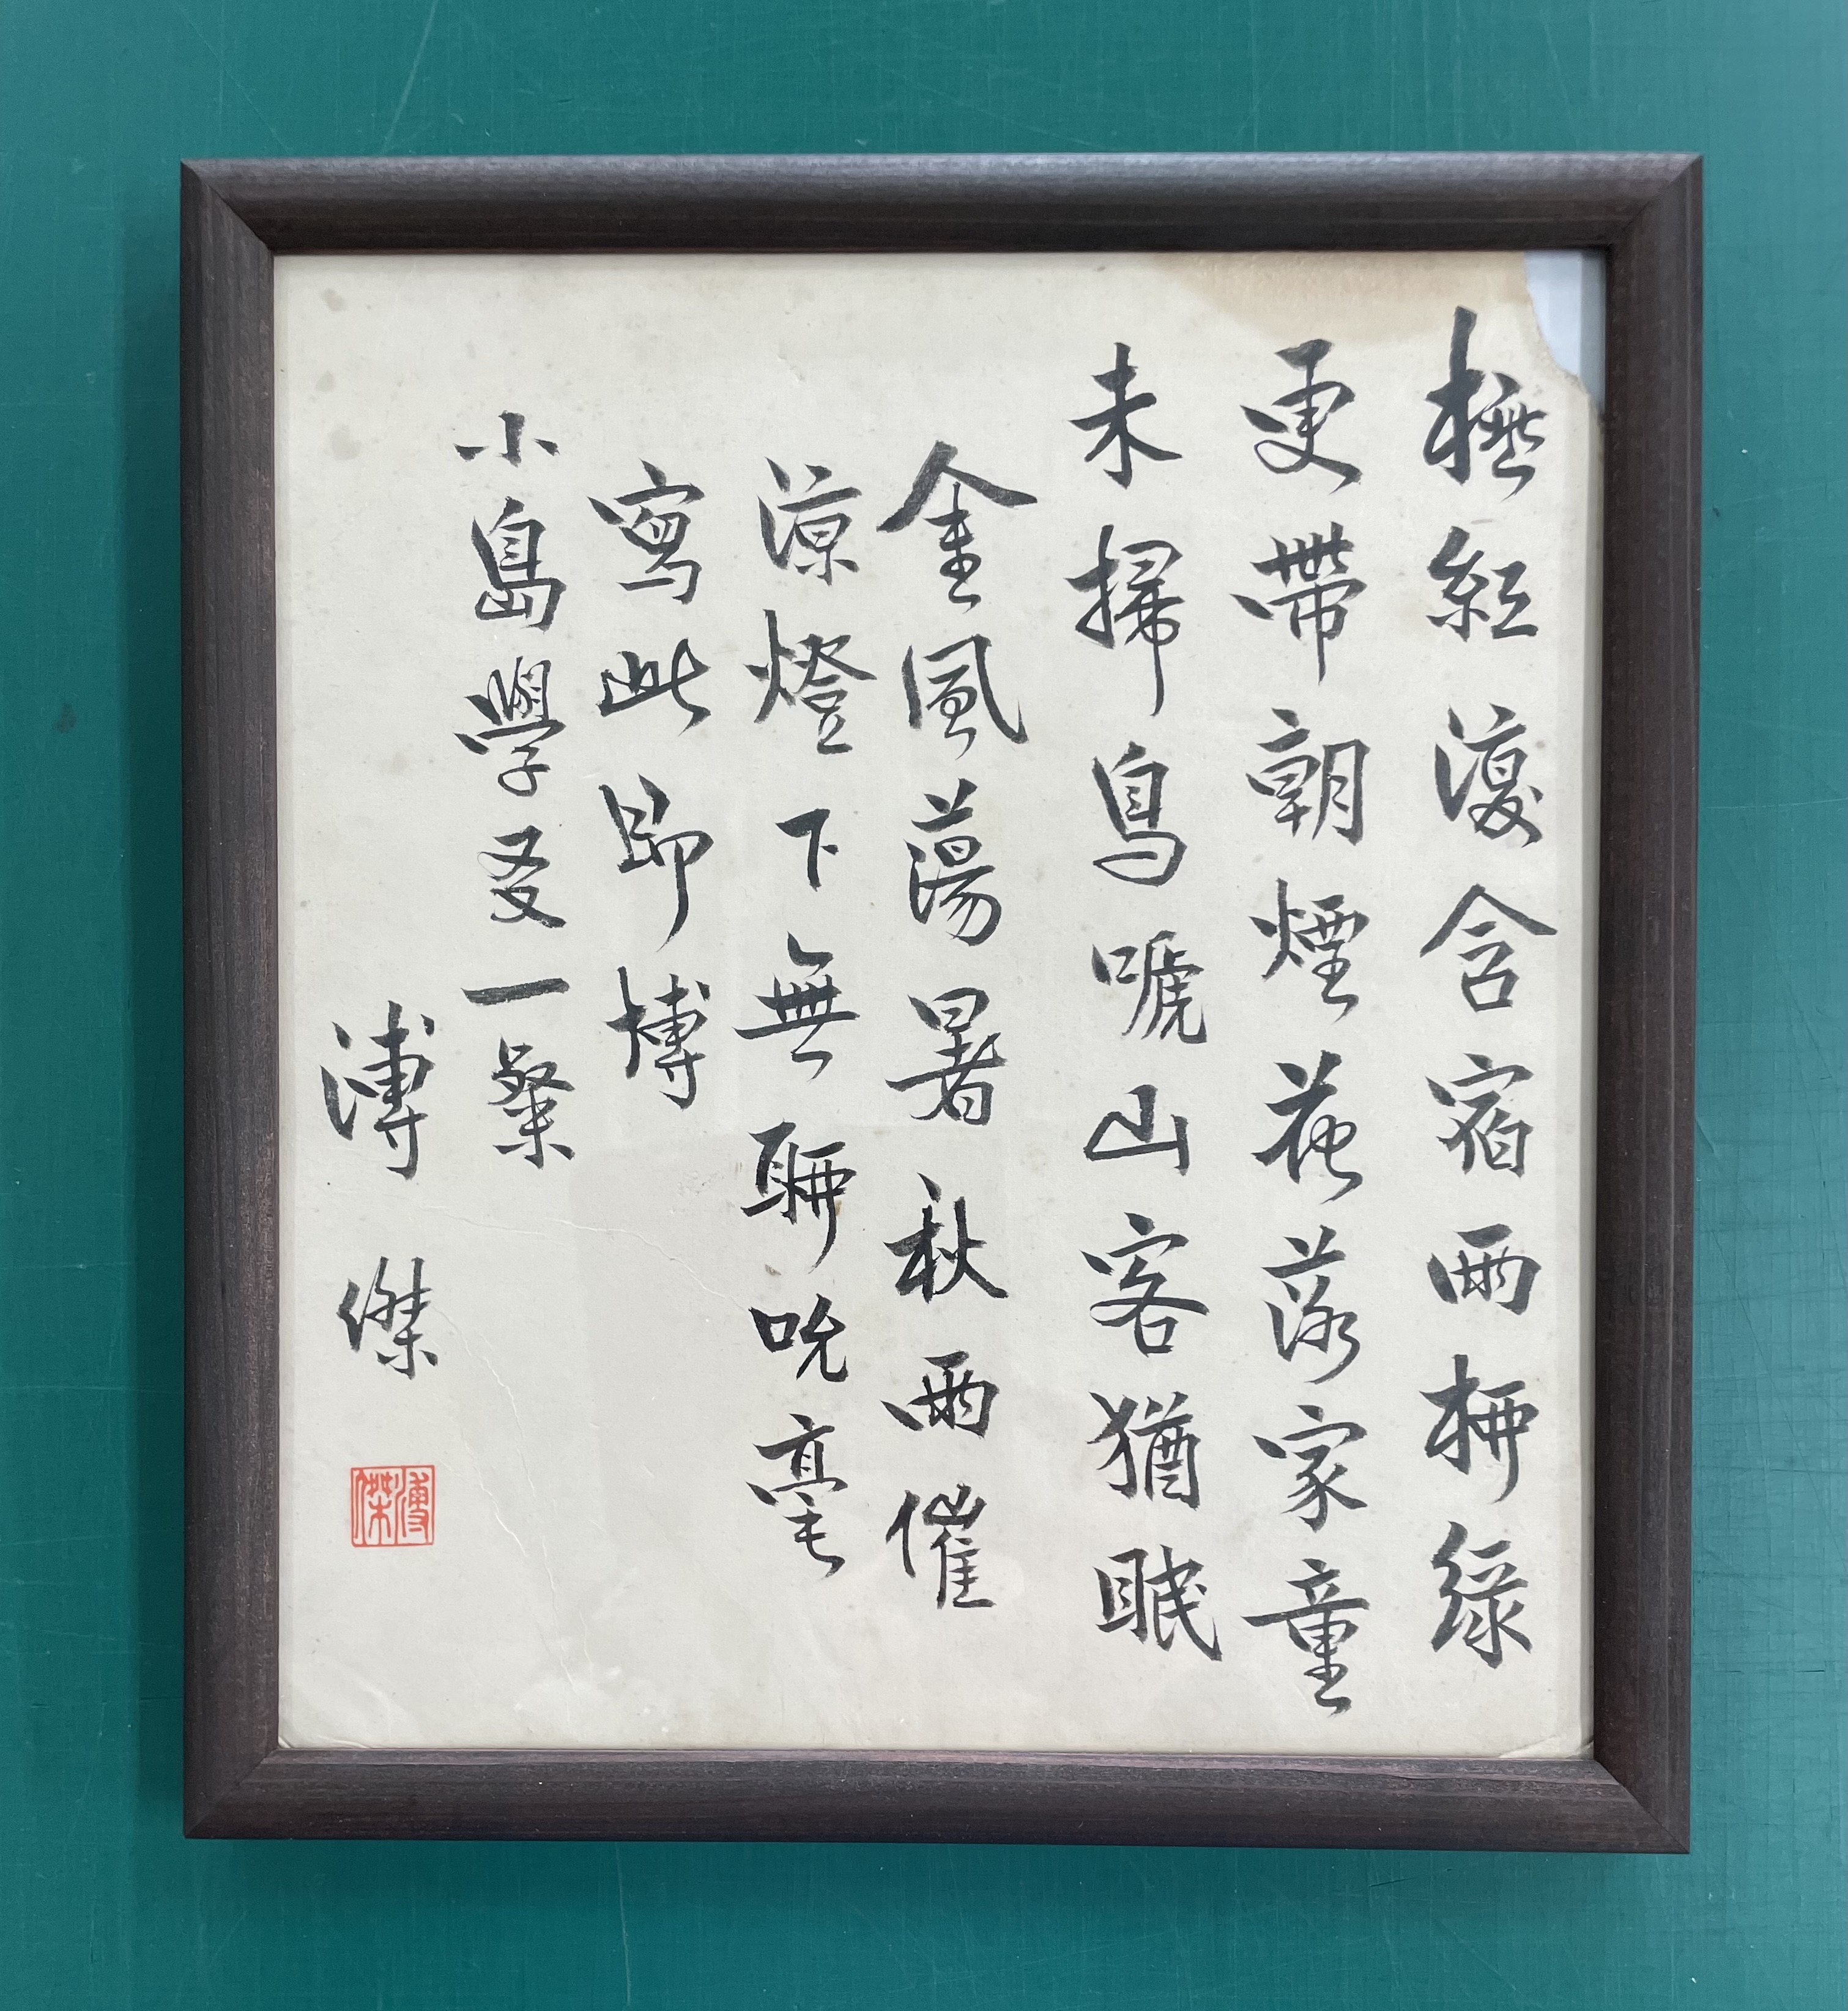 桃紅復含宿雨柳綠
更帶朝煙花落家童
未掃鳥嗁山客猶眠
金風蕩暑秋雨催
涼燈下無聊吮毫
寫此即博
小島學友一粲
溥傑
溥傑